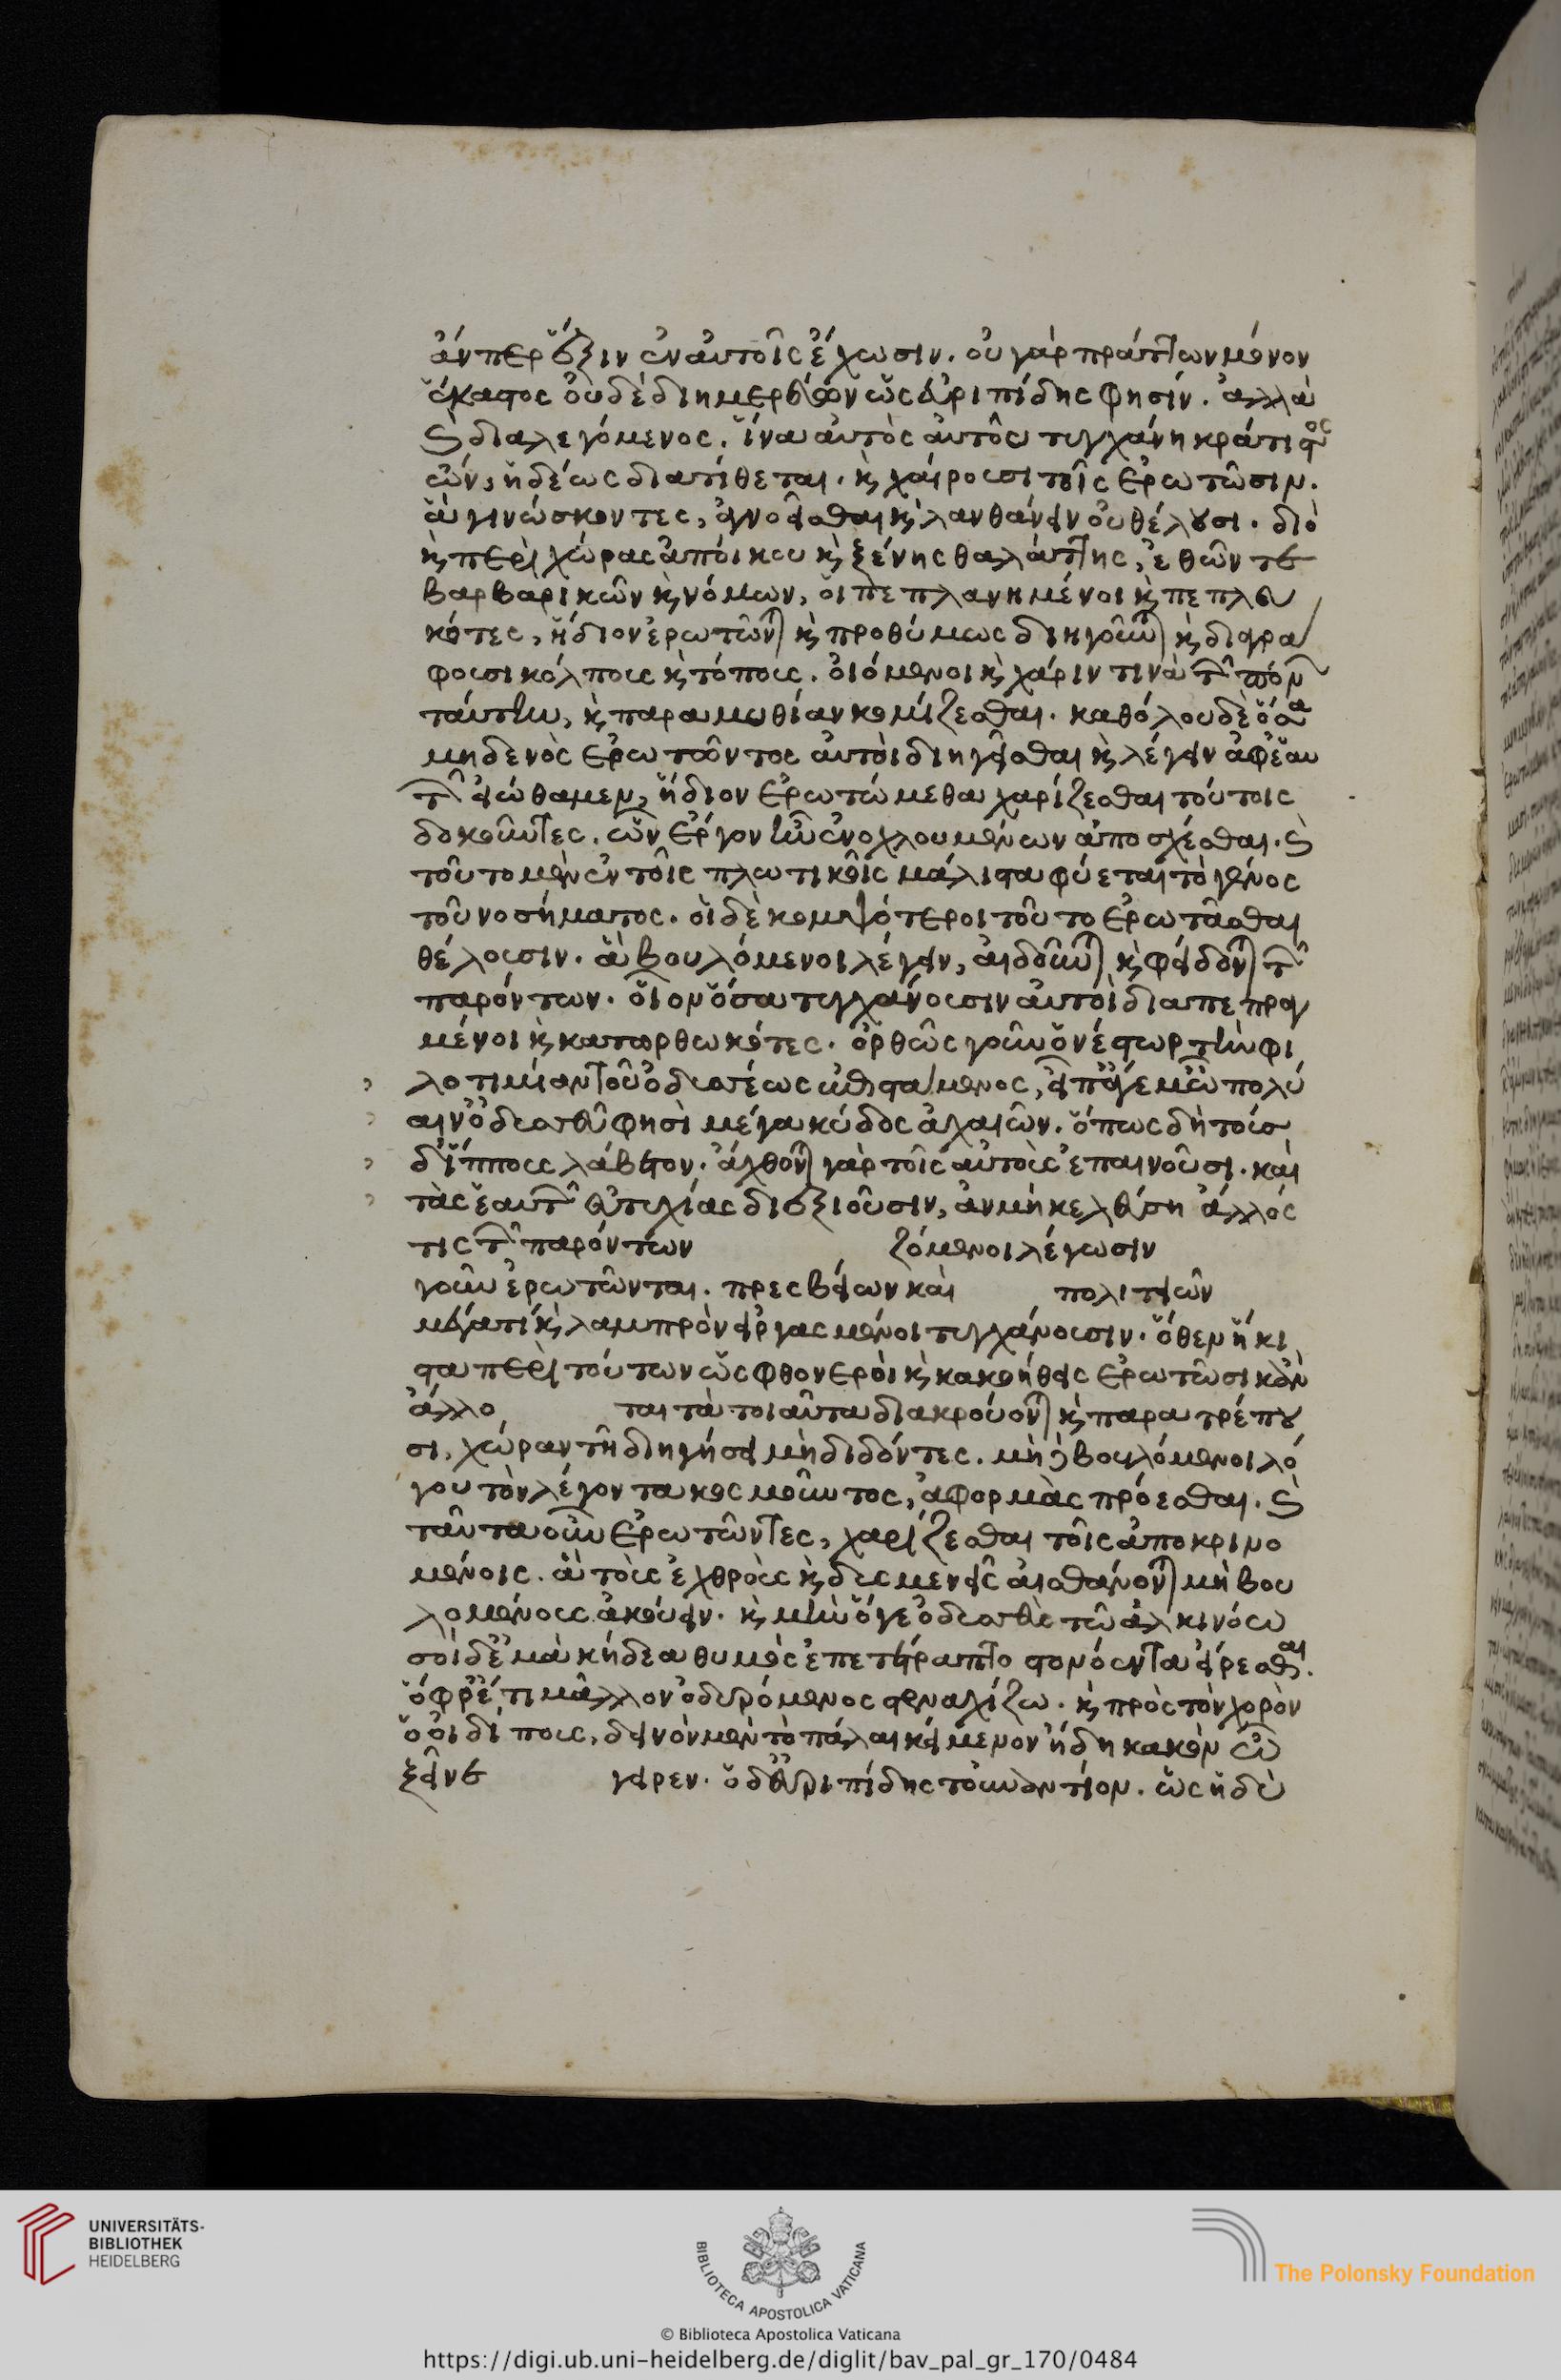 ἄνπερ ἕξιν ἐν αὐτοῖς ἔχωσιν. οὐ γὰρ πράττων μόνον
ἕκαστος οὐδὲ διημερεύων ὡς εὐριπίδης φησίν. ἀλλὰ
καὶ διαλεγόμενος. ἵνα αὐτὸς αὐτοῦ τυγχάνη κράτιστος
ὤν, ἡδέως διατίθεται. καὶ χαίρουσι τοῖς ἐρωτῶσιν.
ἃ γινώσκοντες, ἀγνοεῖσθαι καὶ λανθάνειν οὐ θέλουσι. διὸ
καὶ περὶ χώρας ἀποίκου καὶ ξένης θαλάττης, ἐθῶν τε
βαρβαρικῶν καὶ νόμων, οἱ πεπλανημένοι καὶ πεπλευ
κότες, ἥδιον ἐρωτῶνται καὶ προθύμως διηγοῦνται καὶ διαγρά
φουσι κόλπους καὶ τόπους. οἰόμενοι καὶ χάριν τινὰ τῶν πόνων
ταύτην, καὶ παραμυθίαν κομίζεσθαι. καθόλου δὲ ὅσα
μηδενὸς ἐρωτῶντος αὐτοὶ διηγεῖσθαι καὶ λέγειν ἀφ' ἑαυ
τῶν εἰώθαμεν, ἥδιον ἐρωτώμεθα χαρίζεσθαι τούτοις
δοκοῦντες. ὧν ἔργον ἦν ἐνοχλουμένων ἀποσχέσθαι. καὶ
τοῦτο μὲν ἐν τοῖς πλωτικοῖς μάλιστα φύεται τὸ γένος
τοῦ νοσήματος. οἱ δὲ κομψότεροι τοῦτο ἐρωτᾶσθαι
θέλουσιν. ἃ βουλόμενοι λέγειν, αἰδοῦνται καὶ φείδονται τῶν
παρόντων. οἷον ὅσα τυγχάνουσιν αὐτοὶ διαπεπραγ
μένοι καὶ κατωρθωκότες. ὀρθῶς γοῦν ὁ νέστωρ τὴν φι
λοτιμίαν τοῦ ὀδυσσέως ἐπιστάμενος, εἴπ' ἄγε μ' ὦ πολύ
αιν' ὀδυσσεῦ φησὶ μέγα κύδος ἀχαιῶν. ὅπως δὴ τούσ
δ' ἵππους λάβετον. ἄχθονται γὰρ τοῖς αὐτοὺς ἐπαινοῦσι. καὶ
τὰς ἑαυτῶν εὐτυχίας διεξιοῦσιν, ἂν μὴ κελεύση ἄλλος
τις τῶν παρόντων ζόμενοι λέγωσιν
γοῦν ἐρωτῶνται. πρεσβειῶν καὶ πολιτειῶν
μέγα τι καὶ λαμπρὸν εἰργασμένοι τυγχάνουσιν. ὅθεν ἥκι
στα περὶ τούτων ὡς φθονεροὶ καὶ κακοήθεις ἐρωτῶσι κἂν
ἄλλο ται τὰ τοιαῦτα διακρούονται καὶ παρατρέπου
σι, χώραν τῆ διηγήσει μὴ διδόντες. μὴ δὲ βουλόμενοι λό
γου τὸν λέγοντα κοσμοῦντος, ἀφορμὰς πρόεσθαι. καὶ
ταῦτα οὖν ἐρωτῶντες, χαρίζεσθαι τοῖς ἀποκρινο
μένοις. ἃ τοὺς ἐχθροὺς καὶ δυσμενεῖς αἰσθάνονται μὴ βου
λομένους ἀκούειν. καὶ μὴν ὅγε ὀδυσσεὺς τῶ ἀλκινόω
σοὶ δ' ἐμὰ κήδεα θυμὸς ἐπετράπετο στονόεντα εἴρεσθαι.
ὄφρ' ἔτι μᾶλλον ὀδυρόμενος στεναχίζω. καὶ πρὸς τὸν χορὸν
ὁ οἰδίπους, δεινὸν μὲν τὸ πάλαι κείμενον ἤδη κακὸν ὦ
ξεῖν ε γειρεν. ὁ δ' εὐριπίδης τοὐναντίον. ὡς ἡδὺ
UNIVERSITÄTS-
BIBLIOTHEK
HEIDELBERG
BIBLIOTECA APOSTOLICA VATICANA
The Polonsky Foundation
© Biblioteca Apostolica Vaticana
https://digi.ub.uni-heidelberg.de/diglit/bav_pal_gr_170/0484